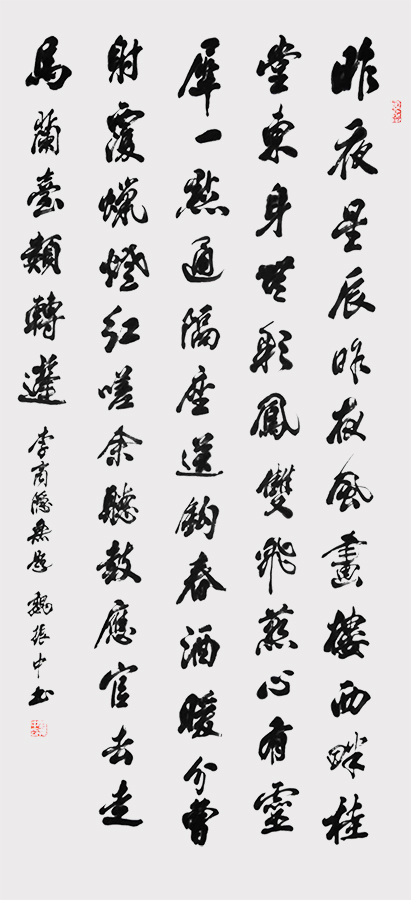 昨夜星辰昨夜風畫樓西畔桂
堂東身無彩鳳雙飛翼心有靈
犀一點通隔座送鈎春酒暖分曹
射覆蠟燈紅嗟余聽鼓應官去走
馬蘭臺類轉蓬
李商隱無題 魏振中書